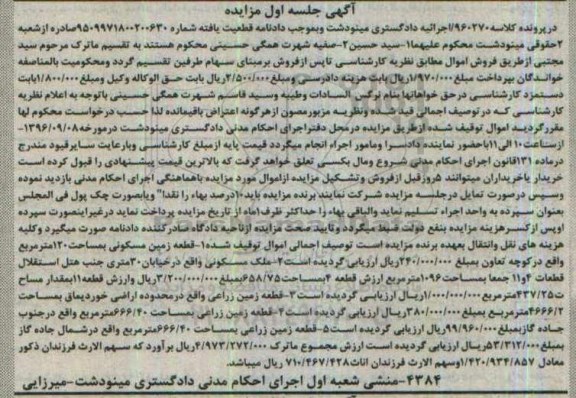 آگهی جلسه اول مزایده
درپرونده کلاسه۹۶۰۲۷۰/اجرائیه دادگستری مینودشت وبموجب دادنامه قطعیت یافته شماره ۹۵۰۹۹۷۱۸۰۰۲۰۰۶۳۰صادره ازشعبه
۲حقوقی مینودشت محکوم علیهما۱-سید حسین۲-صفیه شهرت همگی حسینی محکوم هستند به تقسیم ماترک مرحوم سید
مجتبی ازطریق فروش اموال مطابق نظریه کارشناسی تاپس ازفروش برمبنای سهام طرفین تقسیم گردد ومحکومیت بالمناصفه
خواندگان بپرداخت مبلغ۱/۹۷۰/۰۰۰ریال بابت هزینه دادرسی ومبلغ۲/۵۰۰/۰۰۰ریال بابت حق الوکاله وکیل ومبلغ۱/۸۰۰/۰۰۰بابت
دستمزد کارشناسی درحق خواهانها بنام نرگس السادات وطیبه وسید قاسم شهرت همگی حسینی باتوجه به اعلام نظریه
کارشناسی که درتوصیف اجمالی قید شده ونظریه مزبورمصون ازهرگونه اعتراض باقیمانده لذا حسب درخواست محکوم لها
مقررگردید اموال توقیف شده ازطریق مزایده درمحل دفتراجرای احکام مدنی دادگستری مینودشت درمورخه۱۳۹۶/۰۹/۰۸-
ازساعت۱۰الی۱۱باحضور نماینده دادسرا ومامور اجراء انجام میگردد قیمت پایه ازمبلغ کارشناسی وبارعایت سایرقیود مندرج
درماده ۱۳۱قانون اجرای احکام مدنی شروع ومال بکسی تعلق خواهد گرفت که بالاترین قیمت پیشنهادی را قبول کرده است
خریدار یاخریداران میتوانند ۵روزقبل ازفروش وتشکیل مزایده ازاموال مورد مزایده باهماهنگی اجرای احکام مدنی بازدید نموده
وسپس درصورت تمایل درجلسه مزایده شرکت نمایند برنده مزایده باید۱۰درصد بهاء را نقدا" ویابصورت چک پول فی المجلس
بعنوان سپرده به واحد اجراء تسلیم نماید والباقی بهاء را حداکثر ظرف۱ماه از تاریخ مزایده پرداخت نماید درغیراینصورت سپرده
اوپس ازکسرهزینه مزایده بنفع دولت ضبط میگردد وتایید صحت مزایده ازناحیه دادگاه صادرکننده دادنامه صورت میگیرد وکلیه
هزینه های نقل وانتقال بعهده برنده مزایده است توصیف اجمالی اموال توقیف شده۱-قطعه زمین مسکونی بمساحت۱۲۰مترمربع
واقع درکوچه تعاون بمبلغ ۲۴۰/۰۰۰/۰۰۰ریال ارزیابی گردیده است۲-ملک مسکونی واقع درخیابان۳۰متری جنب هتل استقلال
قطعات ۴و۱۱ جمعا بمساحت۱۰۹۶مترمربع ارزش قطعه ۴بمساحت۶۵۸/۷۵بمبلغ۳/۲۰۰/۰۰۰/۰۰۰ریال وارزش قطعه۱۱بمقدار مساح
ت۴۳۷/۲۵مترمربع۱/۰۰۰/۰۰۰/۰۰۰ریال ارزیابی گردیده است۳-قطعه زمین زراعی واقع درمحدوده اراضی خوردیماق بمساحت
۴۶۶۶/۲مترمربع بمبلغ ۳۸۰/۰۰۰/۰۰۰ریال ارزیابی گردیده است ۴-قطعه زمین زراعی بمساحت ۶۶۶/۴۰مترمربع واقع درجنوب
جاده گازبمبلغ۹۹/۹۶۰/۰۰۰ریال ارزیابی گردیده است۵-قطعه زمین زراعی بمساحت ۶۶۶/۴۰مترمربع واقع درشمال جاده گاز
بمبلغ۵۳/۳۱۲/۰۰۰ریال ارزیابی گردیده است ارزش مجموع ماترک ۴/۹۷۳/۲۷۲/۰۰۰ریال برآورد که سهم الارث فرزندان ذکور
معادل ۱/۴۲۰/۹۳۴/۸۵۷وسهم الارث فرزندان اناث۷۱۰/۴۶۷/۴۲۸ ریال میباشد.
۴۳۸۴-منشی شعبه اول اجرای احکام مدنی دادگستری مینودشت-میرزایی